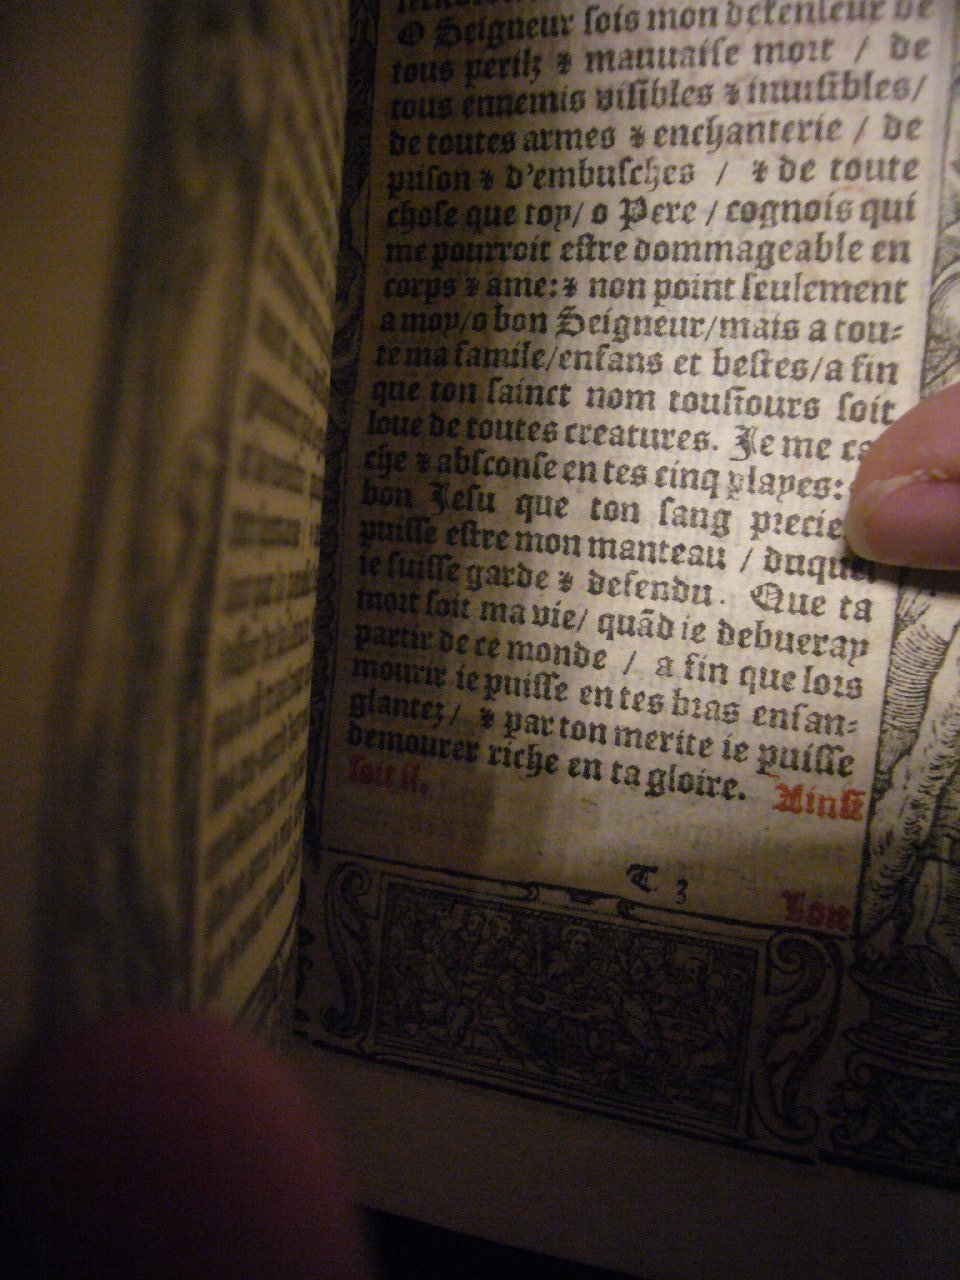 O Seigneur sois mon defenseur de
tous perilz & mauuaise mort / de
tous ennemis visibles & inuisibles/
de toutes armes & enchanterie / de
prison & d'embusches / & de toute
chose que toy/ o Pere / cognois qui
me pourroit estre dommageable en
corps & ame: & non point seulement
a moy/o bon Seigneur/mais a tou=
te ma famile/enfans et bestes/a fin
que ton sainct nom tousiours soit
loue de toutes creatures. Je me ca
che & absconse en tes cinq playes:
bon Jesu que ton sang precie
puisse estre mon manteau / duquel
ie suisse garde & defendu. Que ta
mort soit ma vie/ quãd ie debueray
partir de ce monde / a fin que lors
mourir ie puisse en tes bras ensan=
glantez/ & par ton merite ie puisse
demourer riche en ta gloire. Ainsi
soit il.
T 3